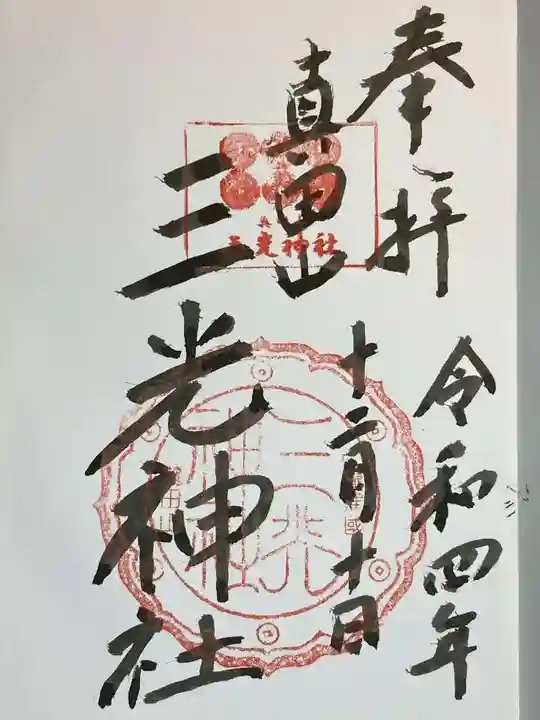 奉拝
令和四年
十二月十日
真田山
三光神社
三光神社
三光
神社